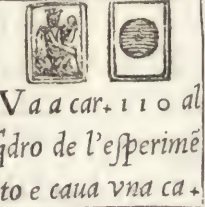 Vaacar. 110 al
q̃dro de l'esperimẽ
to e caua vna ca.